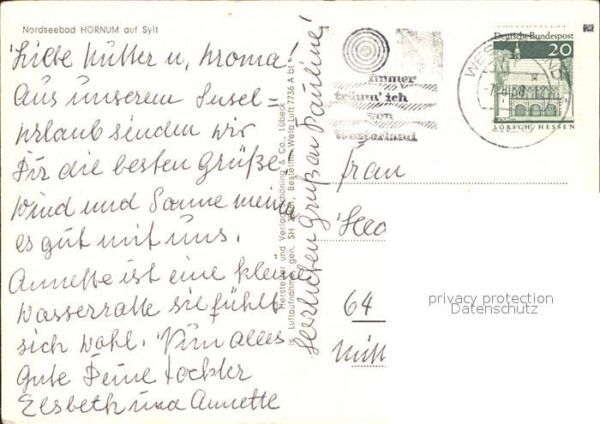 Nordseebad HÖRNUM auf Sylt
Liebe Mutter u, Kroma!
Aus unserem Insel=
urlaub senden wir
Dir die besten Grüße.
Wind und Sonne meinen
es gut mit uns.
Annette ist eine kleine
Wasserratte sie fühlt
sich wohl. Nun alles
Gute Deine Tochter
Elsbeth und Annette
Herzlichen Gruß an Pauline!
Hersteller und Verlag Schöning & Co., Lübeck
Luftaufnahme gen. SH Bestell-Nr. Wela Luft 7736 A bl *
immer
träum' ich
von
Westerland
Deutsche Bundespost
20
LORSCH/HESSEN
Frau
64
privacy protection
Datenschutz